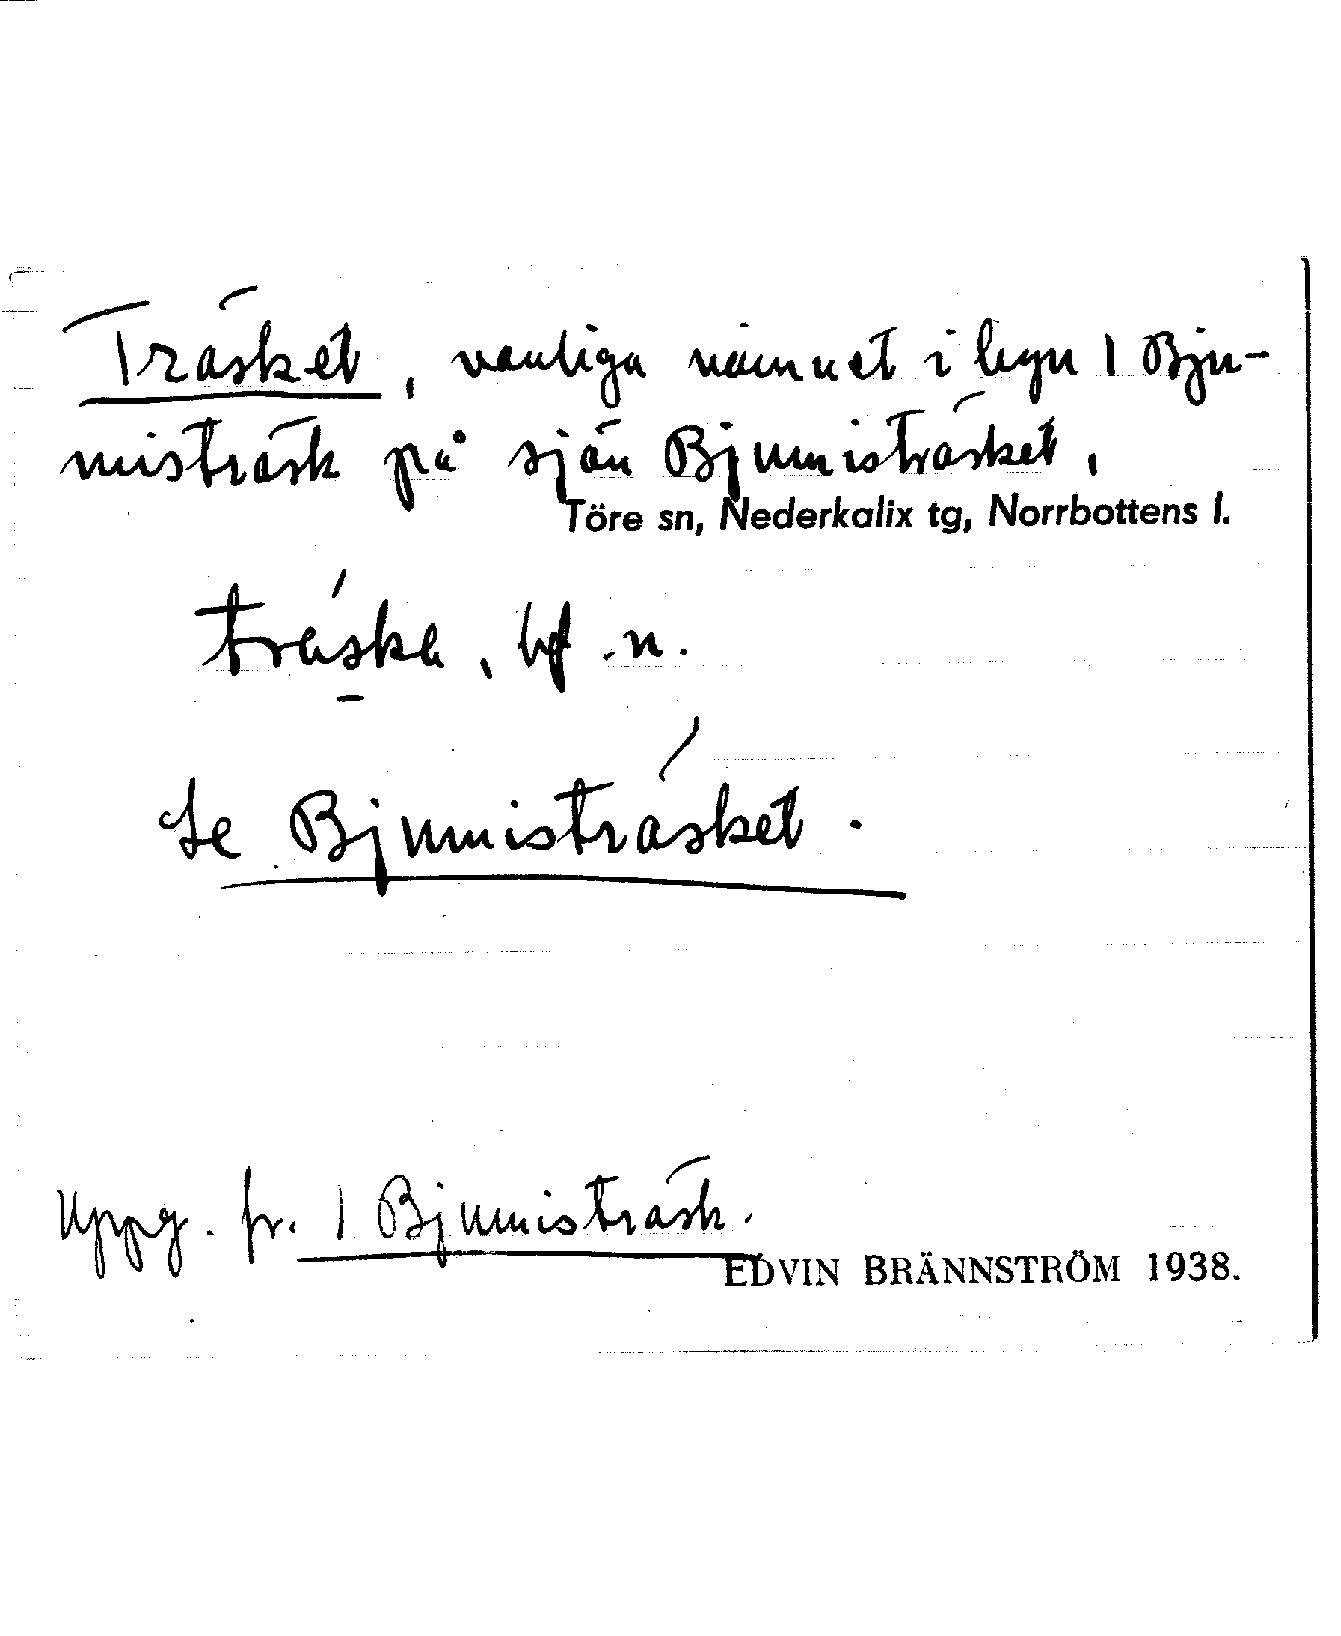 Träsket, vanliga namnet i byn 1 Bju-
misträsk på sjön Bjumisträsket,
Töre sn, Nederkalix tg, Norrbottens l.
träska, bf.n.
Se Bjumisträsket.
Uppg. fr. 1 Bjumisträsk.
EDVIN BRÄNNSTRÖM 1938.